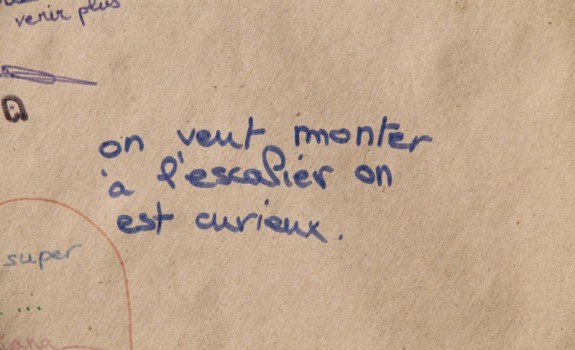 venir plus
on veut monter
à l'escalier on
est curieux.
super